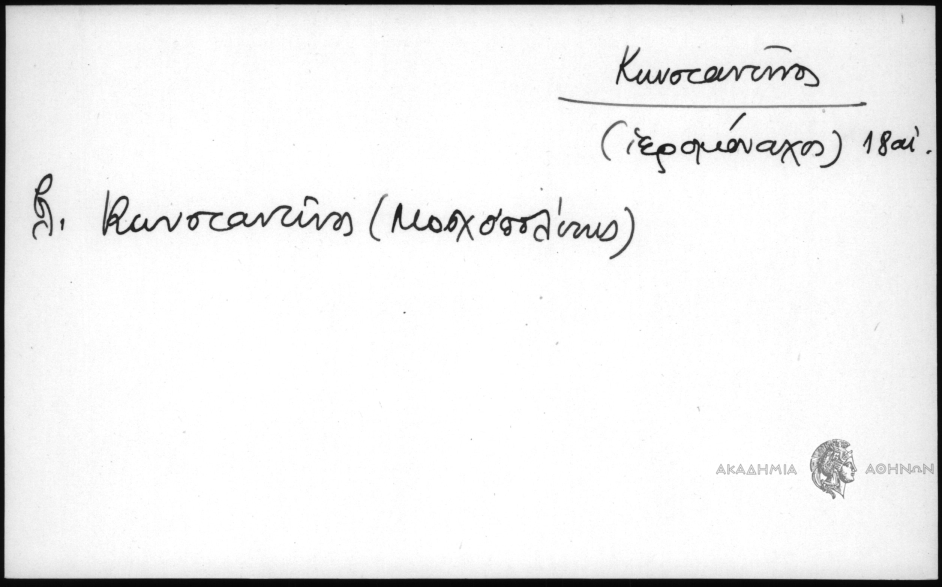 Κωνσταντῖνος
(ἱερομόναχος) 18 αἰ.
βλ. Κωνσταντῖνος (Μοσχοπολίτης)
ΑΚΑΔΗΜΙΑ ΑΘΗΝΩΝ